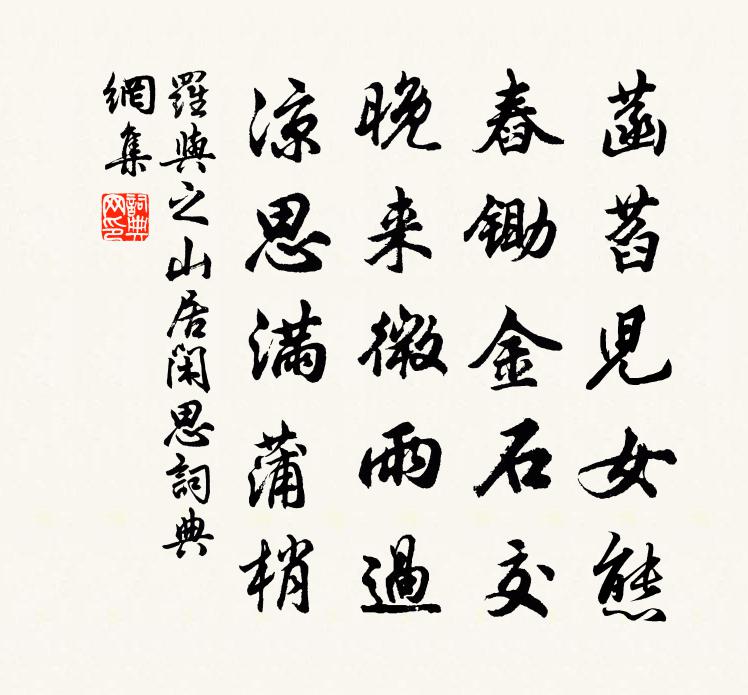 菡萏兒女態
舂鋤金石交
晚来微雨過
涼思滿蒲梢
羅與之山居閑思詞典
網集
詞典网印